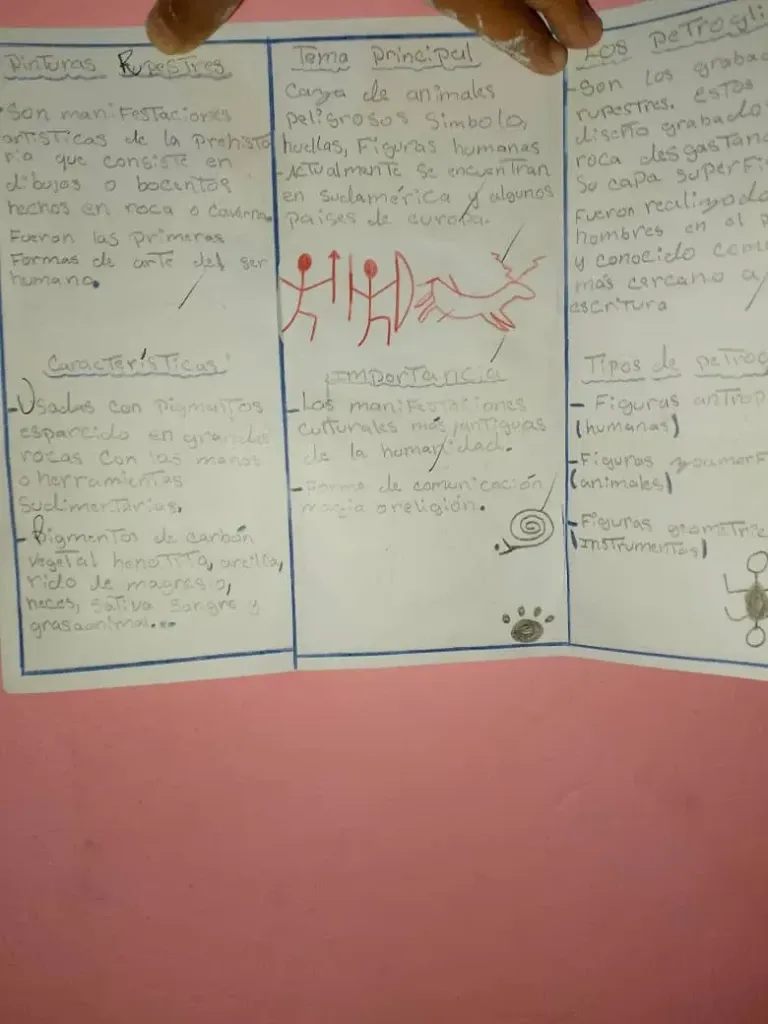 Pinturas Rupestres
• Son manifestaciones
artísticas de la Prehisto
ria que consiste en
dibujos o bocentos
hechos en roca o caverna.
Fueron las primeras
Formas de arte del ser
humano.
Características
- Usadas con pigmentos
esparcido en grandes
rocas con las manos
o herramientas
Sudimentarias.
- Pigmentos de carbón
vegetal hematita, arcilla,
heces, saliva sangre y
grasa animal...
Tema Principal
Caza de animales
peligrosos Simbolo,
huellas, Figuras humanas
- Actualmente se encuentran
en sudamérica y algunos
paises de europa.
Importancia
- Los manifestaciones
culturales más antiguas
de la humanidad.
- Forma de comunicación
magia o religión.
Los petrogli
- Son los grabado
rupestres. Estos
diseño grabado
roca desgastan
Su capa superfi
Fueron realizado
hombres en el p
y conocido com
más cercano a
escritura
Tipos de petrog
- Figuras antrop
(humanas)
- Figuras zoomorf
(animales)
- Figuras geometric
(Instrumentos)